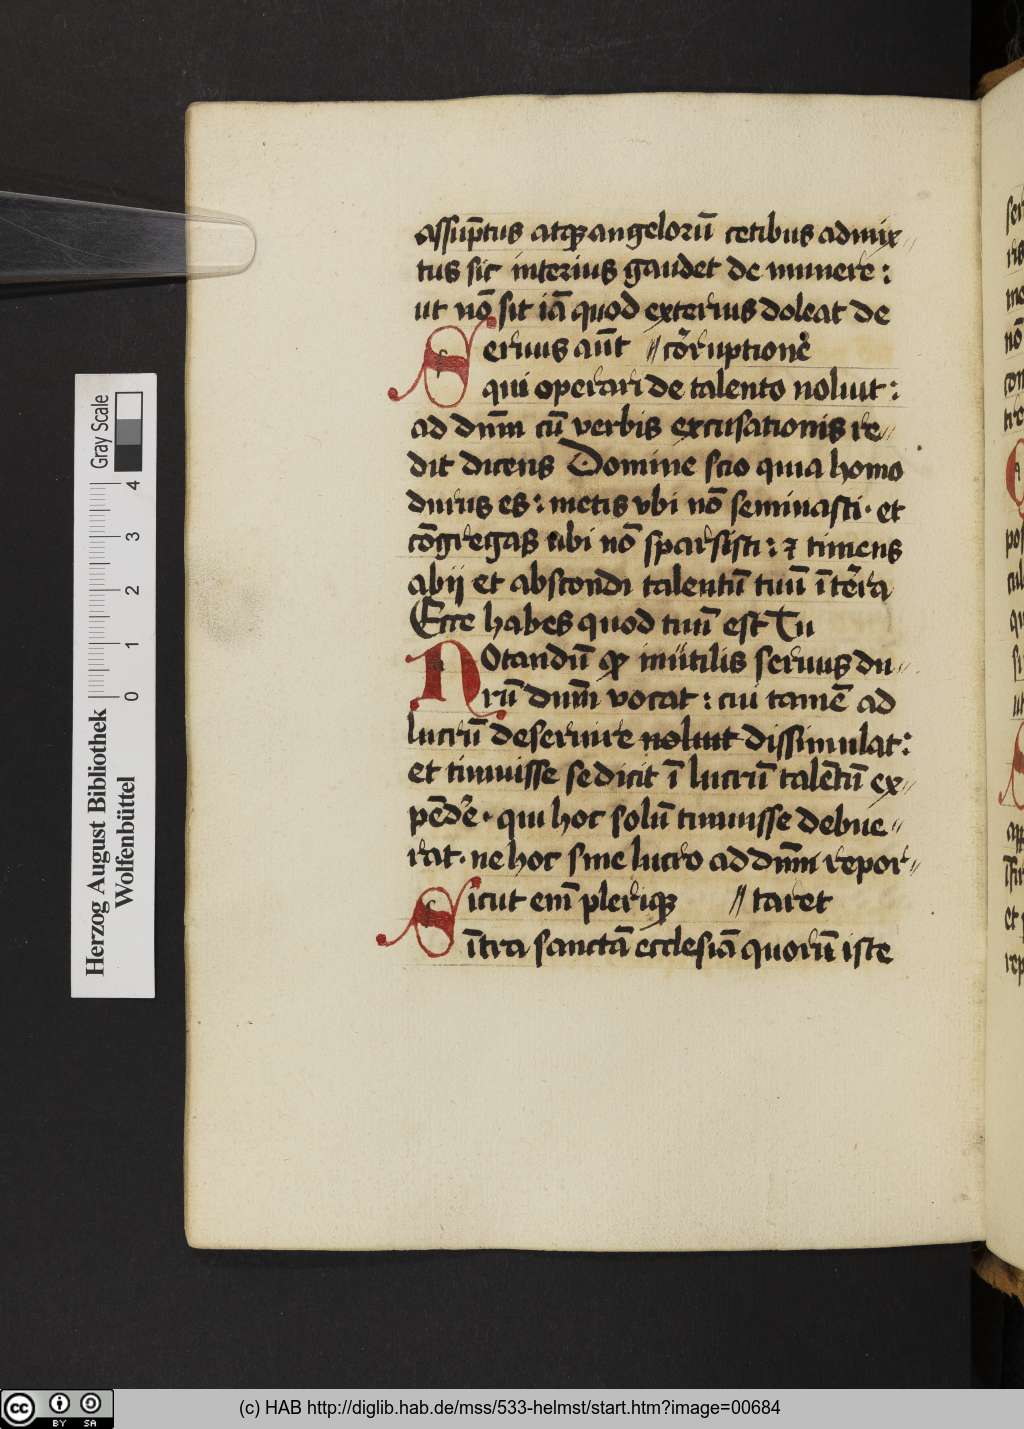 assūptus atqꝫ angelorū cetibus admix⸗
tus sic interius gaudet de munere :
ut nō sit iā quod exterius doleat de
Seruus aūt // cōrruptionē
qui operari de talento noluit :
ad dn̄m cū verbis excusationis re⸗
dit dicens Domine scio quia homo
durus es : metis vbi nō seminasti · et
cōgregas ubi nō sparsisti : ⁊ timens
abij et abscondi talentū tuū ī terra
Ecce habes quod tuū est Tu
Notandū ꝙ inūtilis seruus du⸗
rū dn̄m vocat : cui tamē ad
lucrū deseruire noluit dissimulat :
et timuisse se dicit ī lucrū talētū ex⸗
pēdere · qui hoc solū timuisse debue⸗
rat · ne hoc sine lucro ad dn̄m repor⸗
Sicut em̄ pleriqꝫ // taret
ītra sanctā ecclesiā quorū iste
Gray Scale
0 1 2 3 4
Herzog August Bibliothek
Wolfenbüttel
cc BY SA
(c) HAB http://diglib.hab.de/mss/533-helmst/start.htm?image=00684